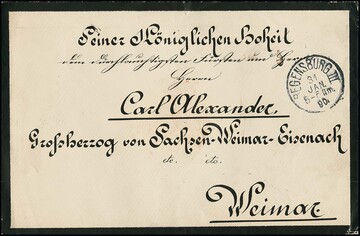 Seiner Königlichen Hoheit
dem durchlauchtigsten Fürsten und Herrn
Herrn
Carl Alexander,
Großherzog von Sachsen-Weimar-Eisenach
etc. etc.
Weimar.
REGENSBURG III
31
JAN.
90.